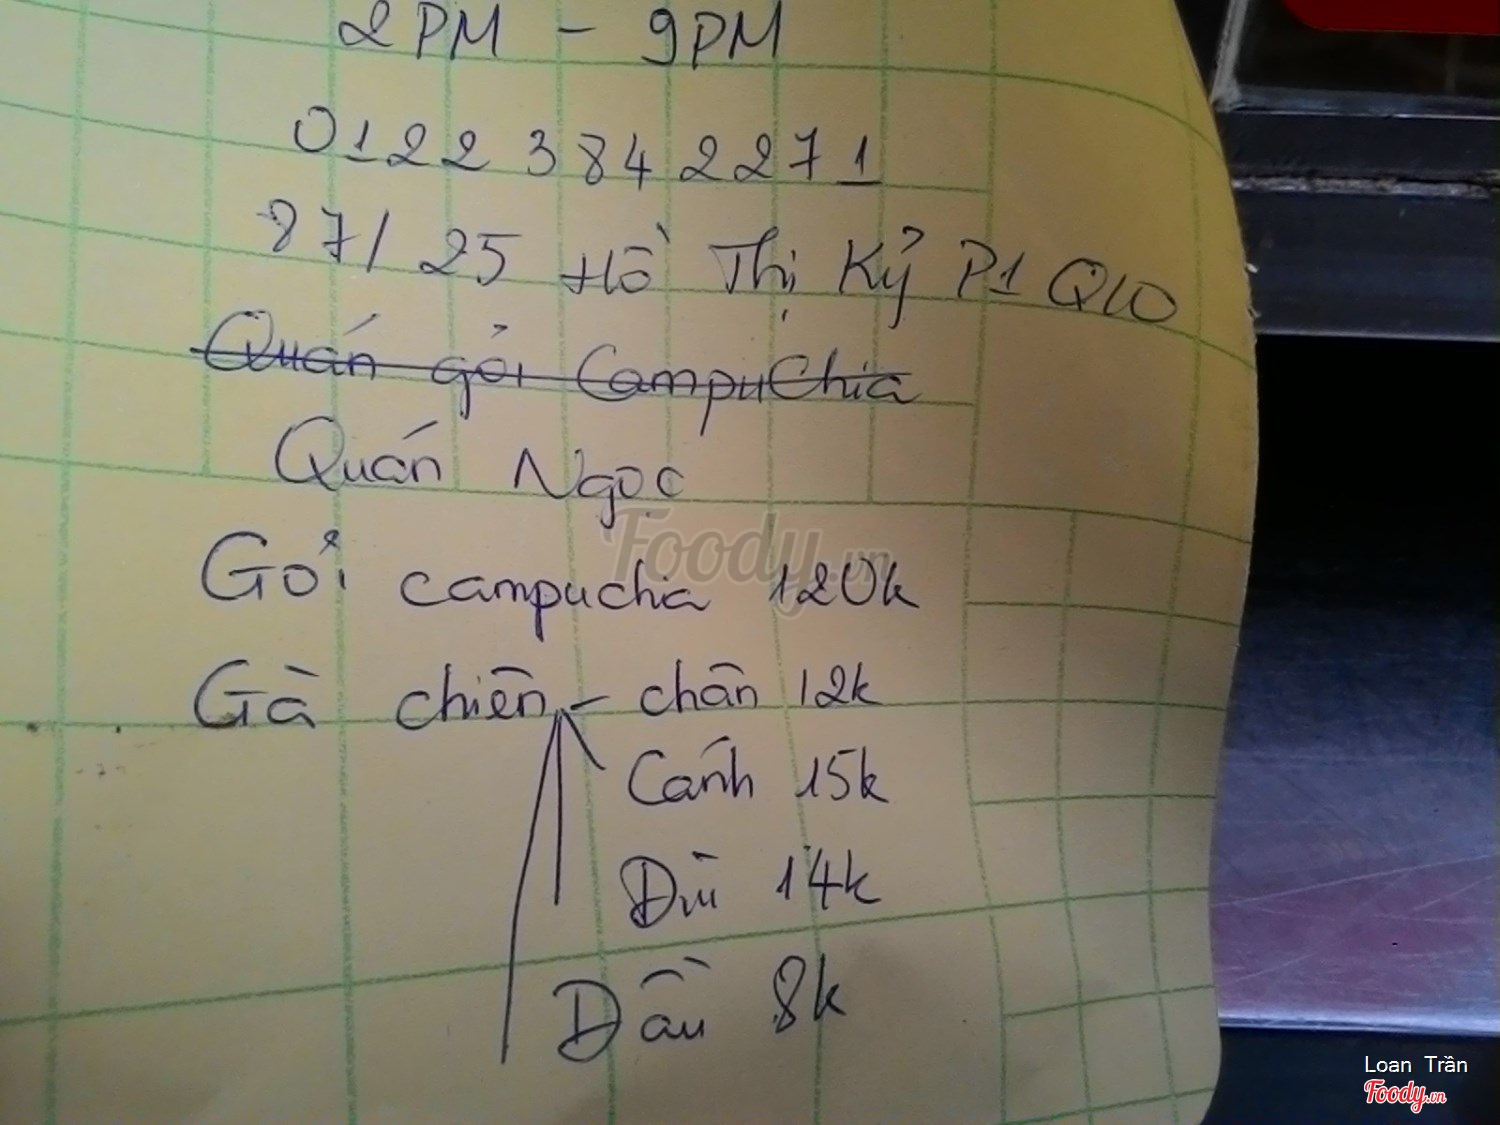 2PM - 9PM
0122 384 2271
87/25 Hồ Thị Kỷ P1 Q10
Quán gỏi Campuchia
Quán Ngọc
Gỏi campuchia 120k
Gà chiên - chân 12k
Cánh 15k
Đùi 14k
Đầu 8k
Foody.vn
Loan Trần
Foody.vn